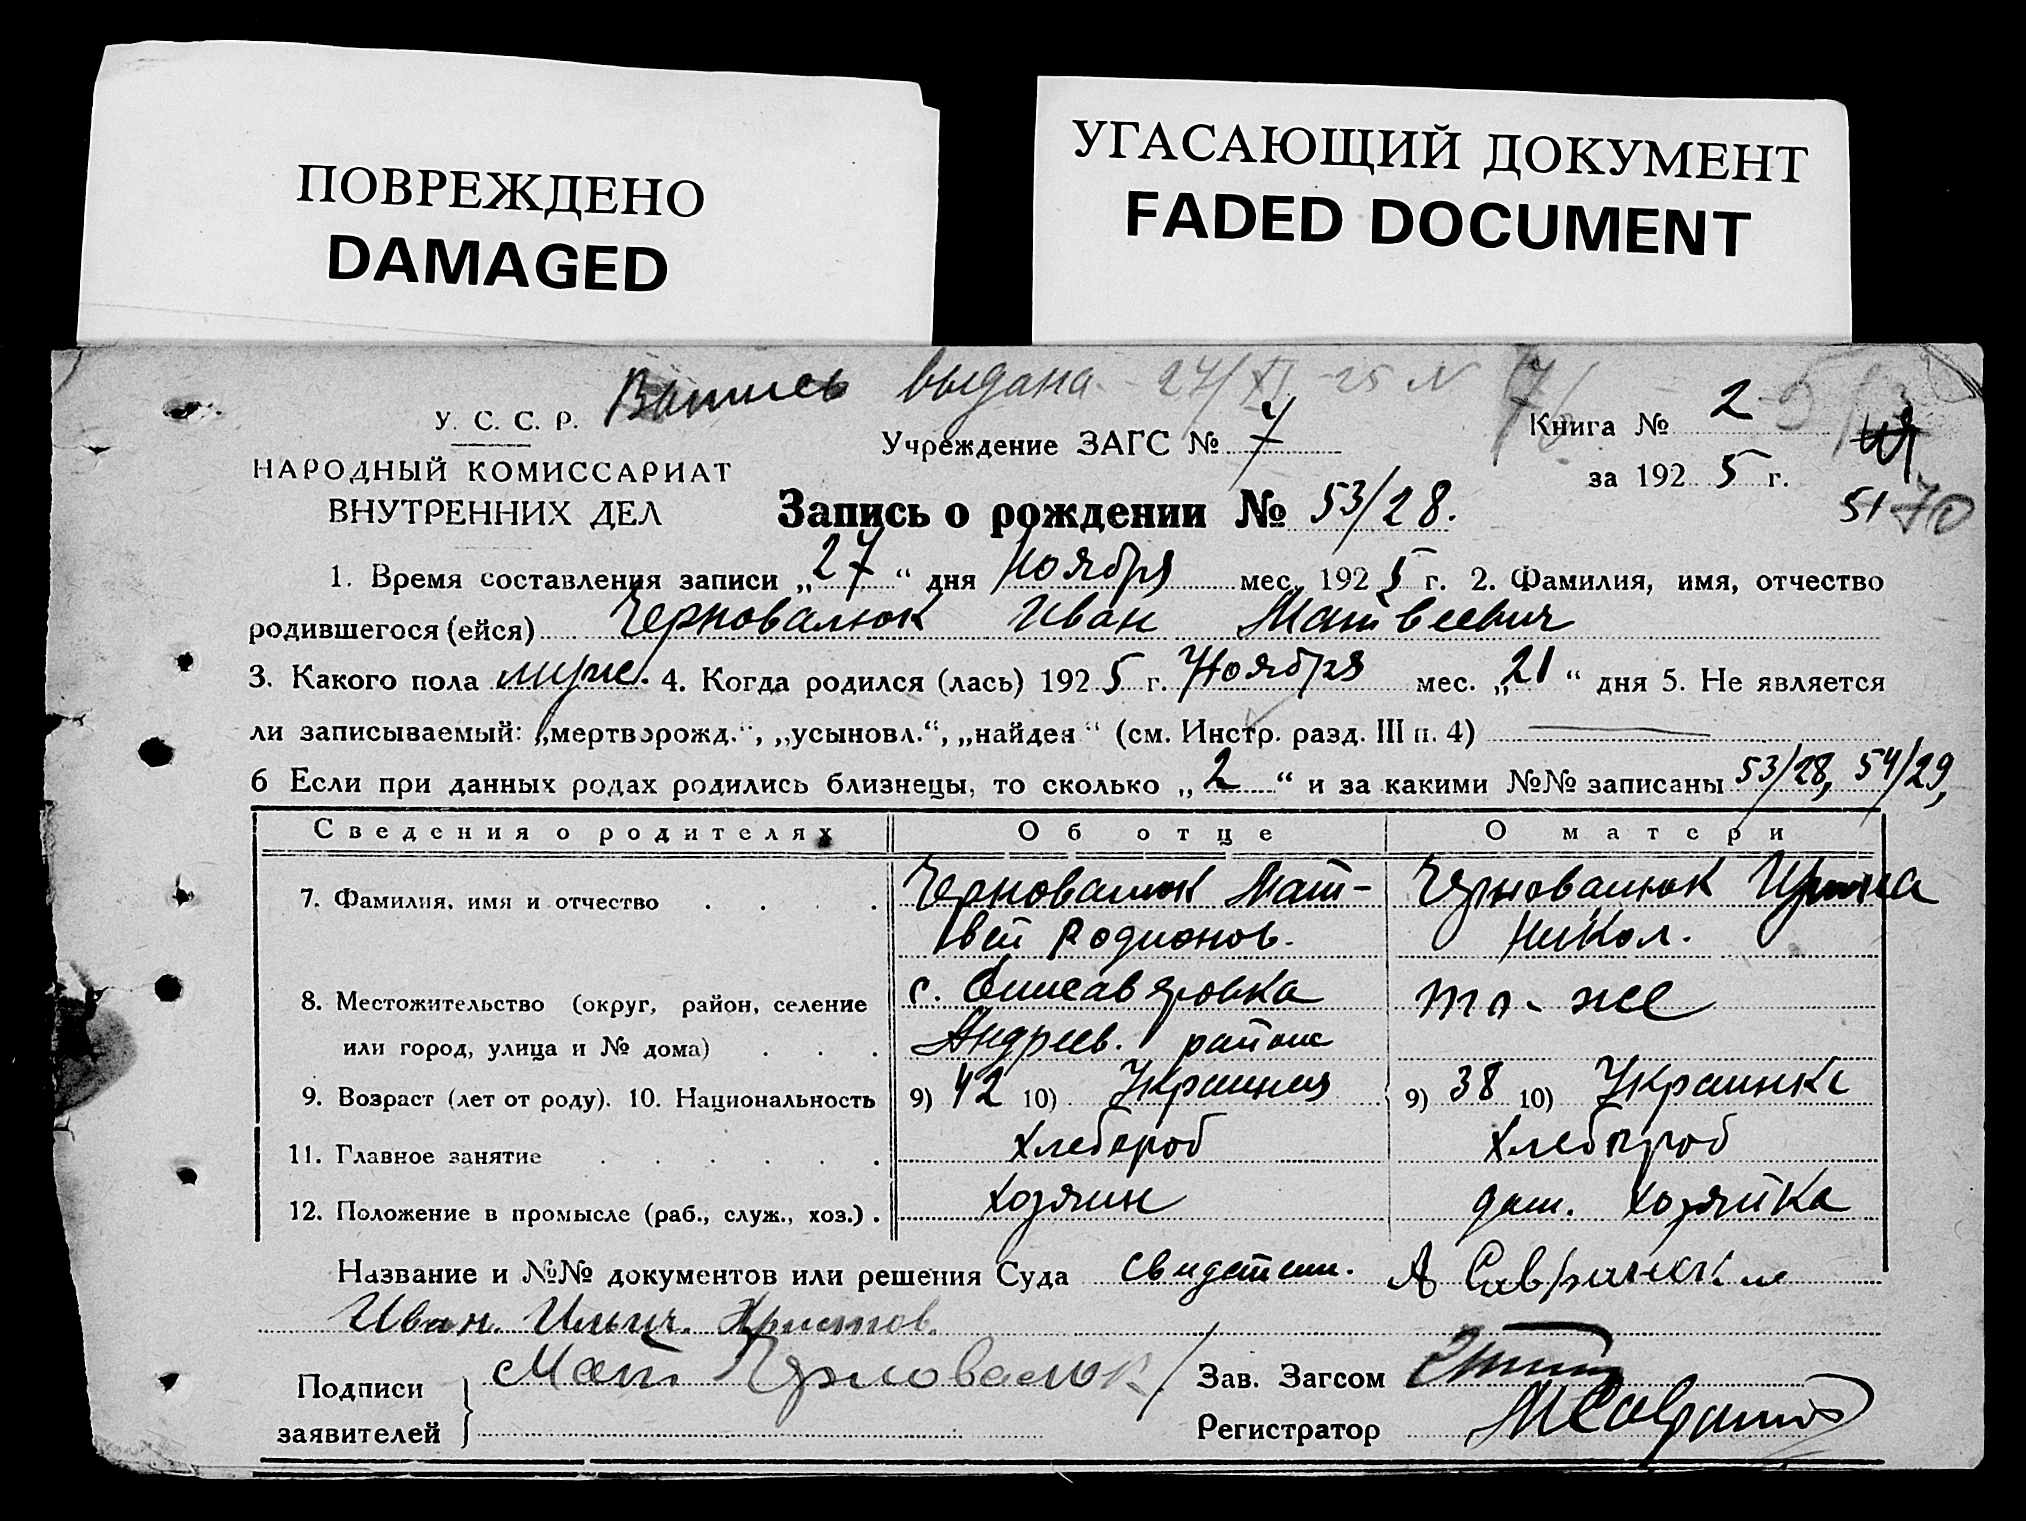 ПОВРЕЖДЕНО
DAMAGED
УГАСАЮЩИЙ ДОКУМЕНТ
FADED DOCUMENT
выдана 24/XI-25 N
У. С. С. Р.
НАРОДНЫЙ КОМИССАРИАТ
ВНУТРЕННИХ ДЕЛ
Учреждение ЗАГС № 7
Книга № 2
за 1925 г.
51 70
Запись о рождении № 53/28.
1. Время составления записи „27“ дня Ноября мес. 1925 г. 2. Фамилия, имя, отчество
родившегося (ейся) Черновалюк Иван Матвеевич
3. Какого пола муж. 4. Когда родился (лась) 1925 г. Ноября мес. „21“ дня 5. Не является
ли записываемый: „мертворожд.“, „усыновл.“, „найден“ (см. Инстр. разд. III п. 4)
6 Если при данных родах родились близнецы, то сколько „2“ и за какими №№ записаны 53/28, 54/29,
Сведения о родителях Об отце О матери
7. Фамилия, имя и отчество Черновалюк Мат- Черновалюк Ирина
вей Родионов. Никол.
8. Местожительство (округ, район, селение с. Елисаверовка то-же
или город, улица и № дома) Андреев. район
9. Возраст (лет от роду). 10. Национальность 9) 42 10) Украинец 9) 38 10) Украинка
11. Главное занятие Хлебороб Хлебороб
12. Положение в промысле (раб., служ., хоз.). Хозяин дом. хозяйка
Название и №№ документов или решения Суда свидетели. А
Иван. Ильич. Христов.
Подписи
заявителей
Мат Черновалюк
Зав. Загсом
Регистратор